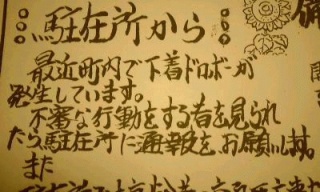 駐在所から
最近町内で下着ドロボーが
発生しています。
不審な行動をする者を見られ
たら駐在所に通報をお願いします。
また
備